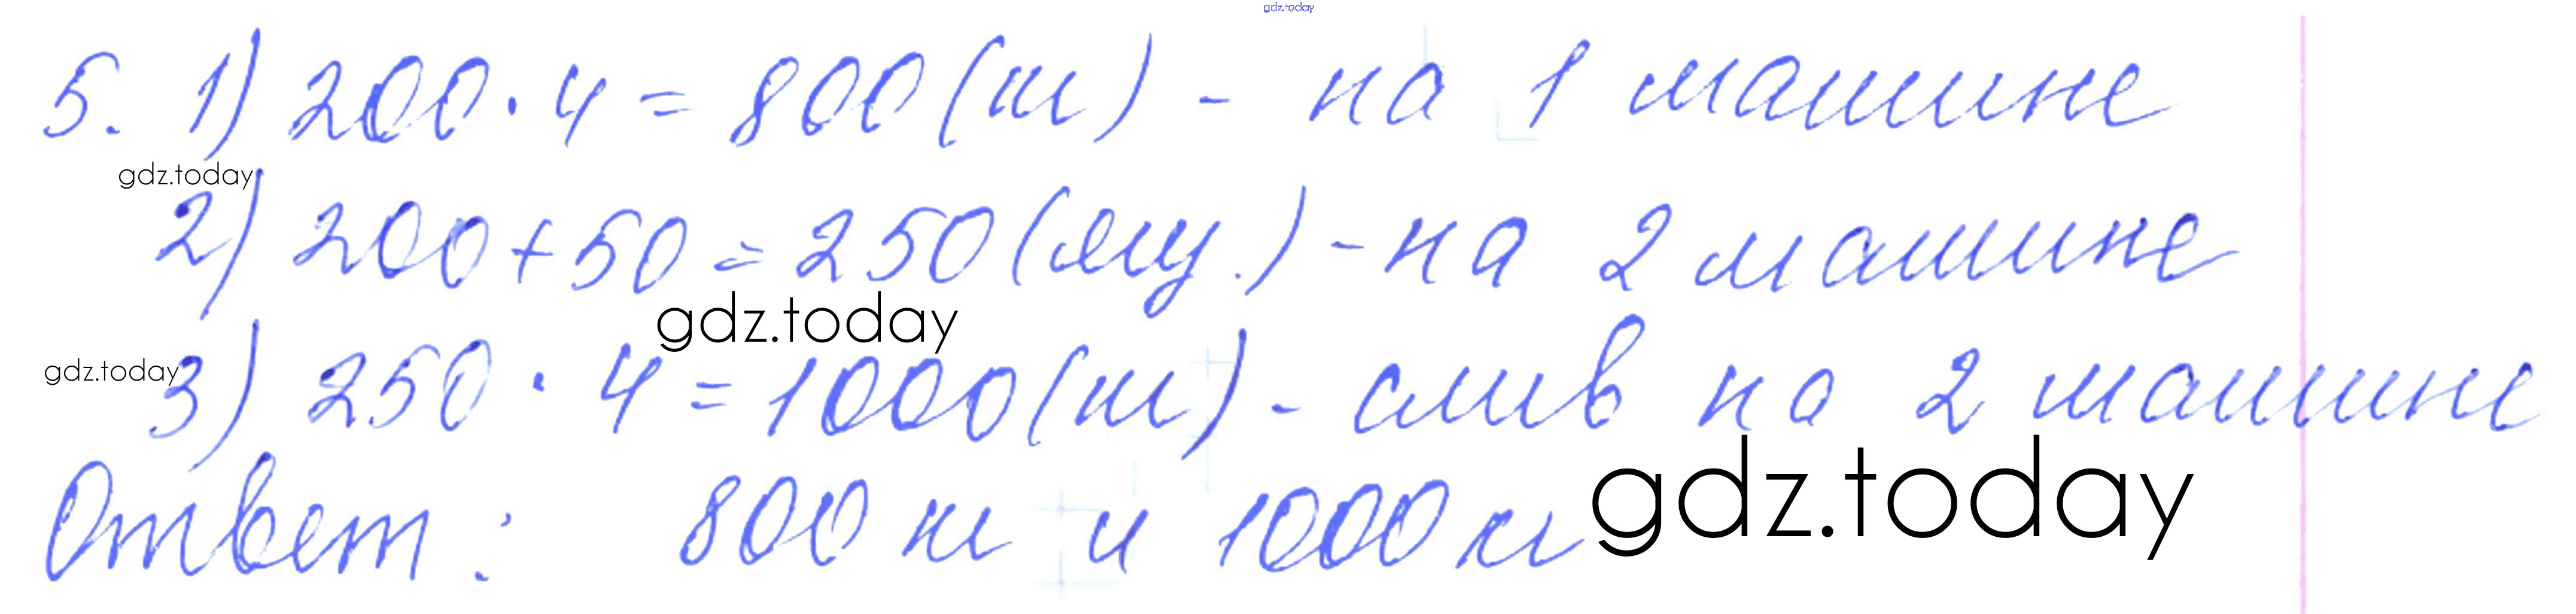 gdz.today
5. 1) 200 · 4 = 800 (кг) - на 1 машине
gdz.today
2) 200 + 50 = 250 (ящ.) - на 2 машине
gdz.today
gdz.today
3) 250 · 4 = 1000 (кг) - слив на 2 машине
Ответ: 800 кг и 1000 кг
gdz.today